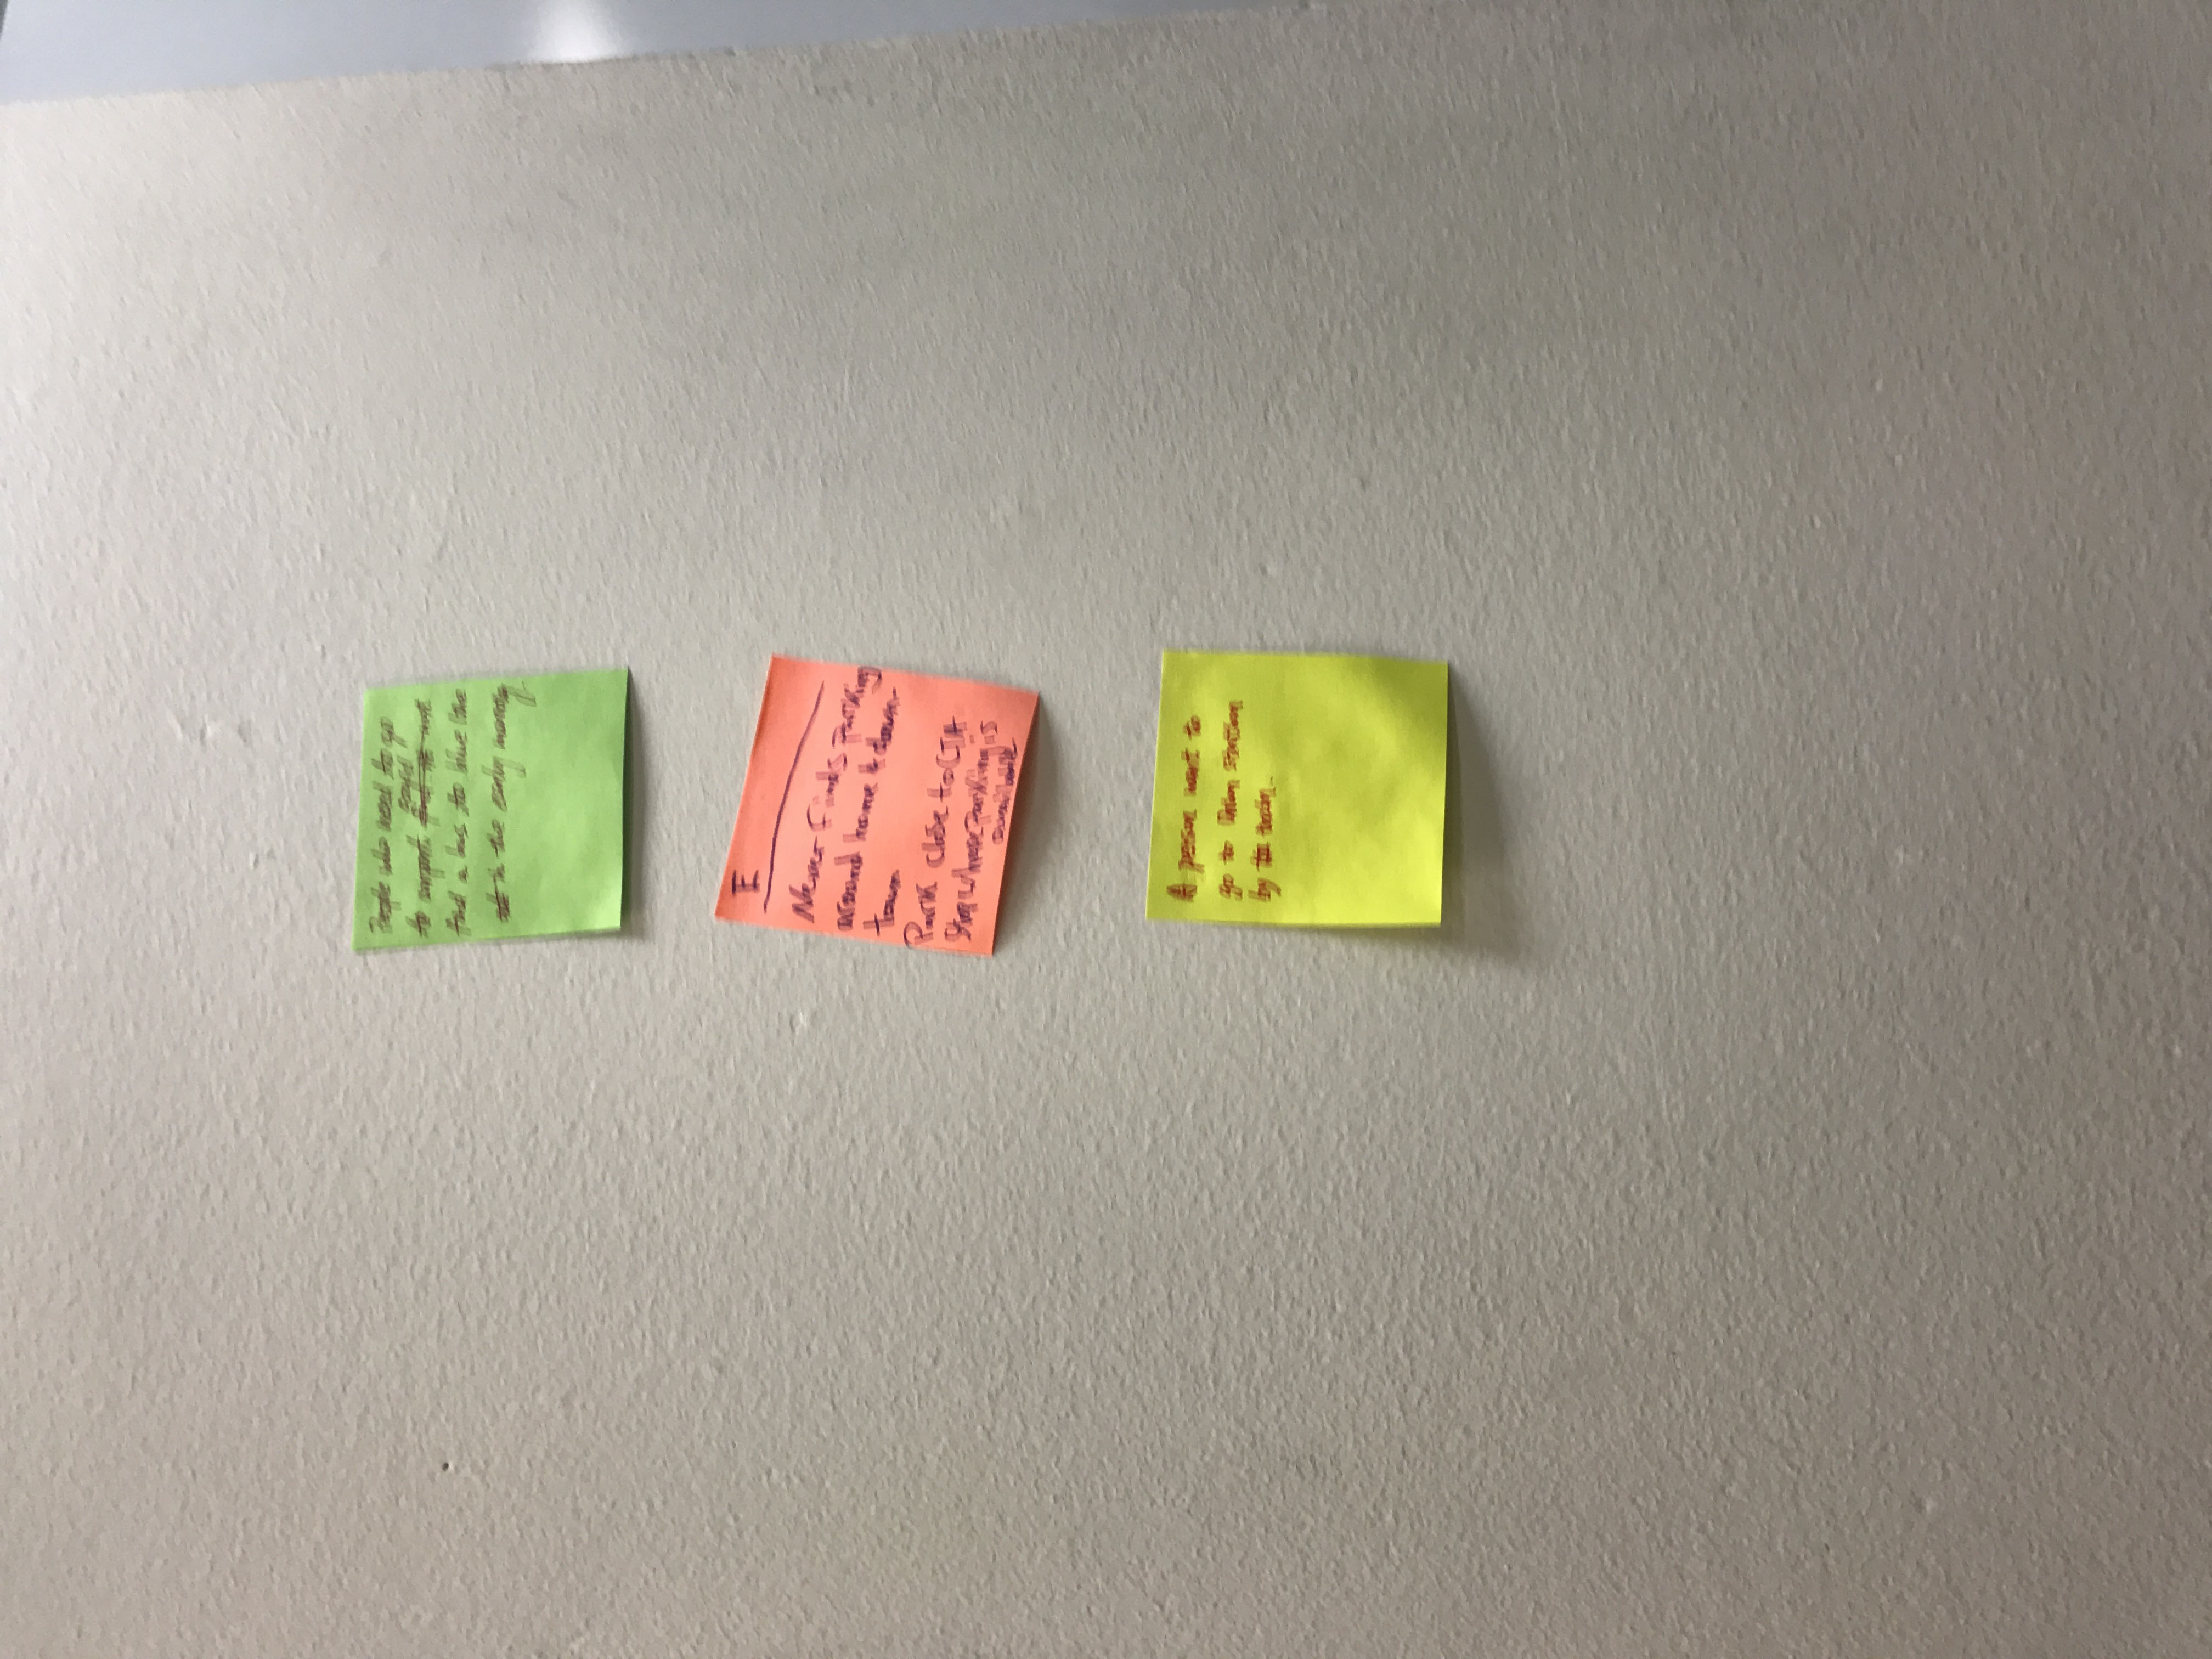 People who need to go
to airport could not
find a bus to blue line
in the early morning
E
Never finds parking
around home & down-
town
Park close to CTA
Stop where parking is
available
A person want to
go to Union station
by train.